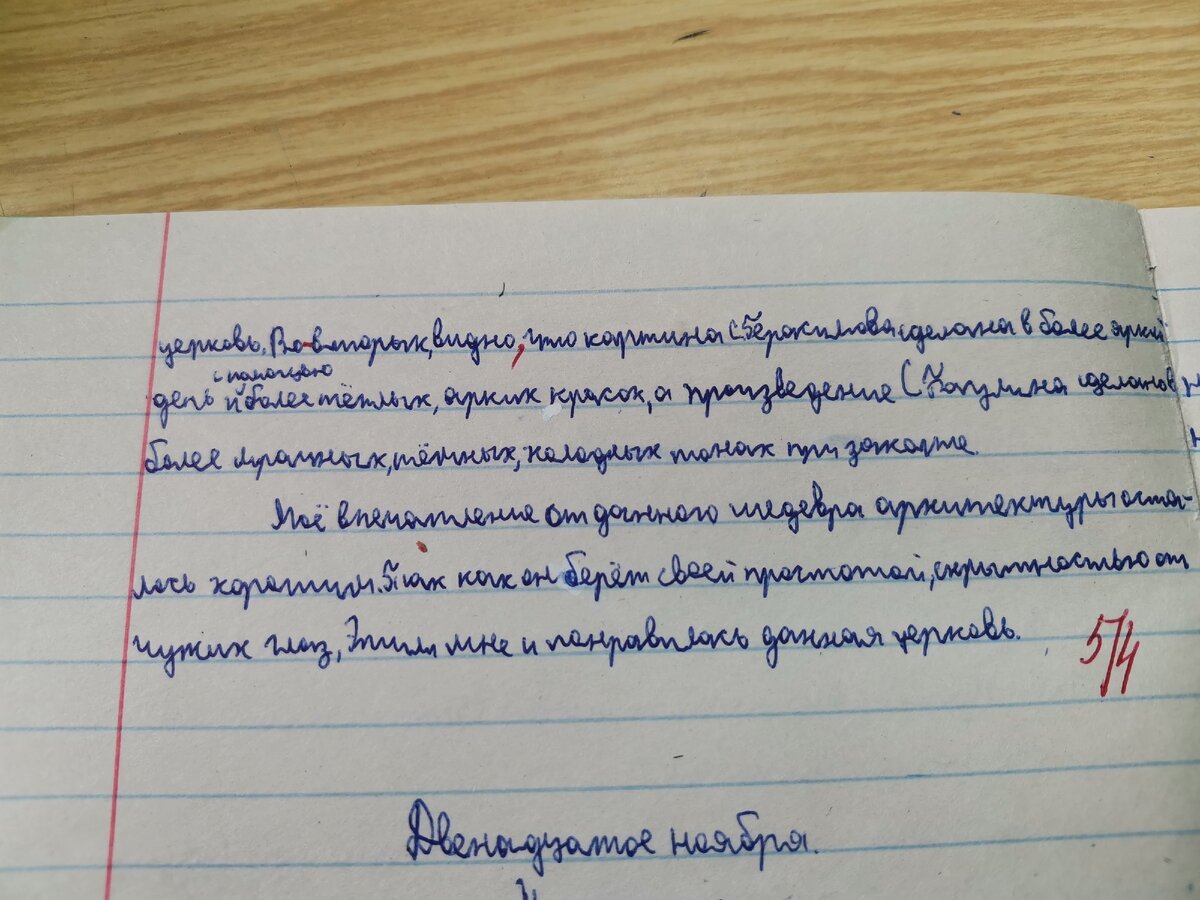 церковь. Во-вторых, видно, что картина С. Герасимова сделана в более яркий
с помощью
день и более тёплых, ярких красок, а произведение С. Баулина сделано в
более мрачных, тёмных, холодных тонах при закате.
Моё впечатление от данного шедевра архитектуры оста-
лось хорошим. Так как он берёт своей простотой, скрытностью от
чужих глаз, Этим мне и понравилась данная церковь.
5/4
Двенадцатое ноября.